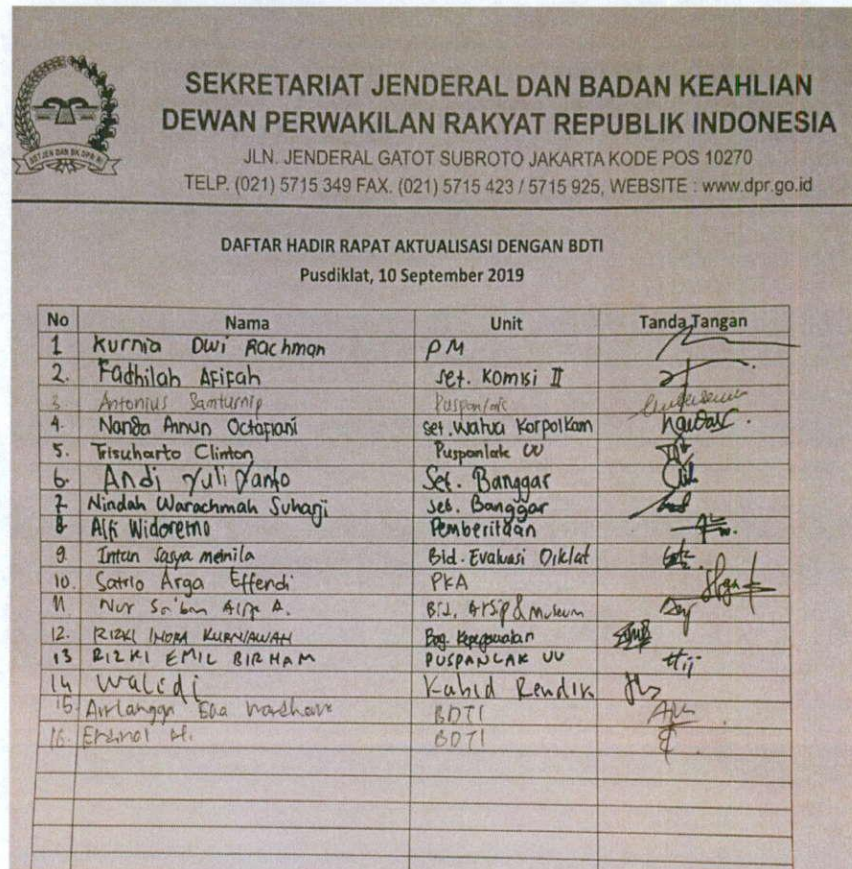 SETJEN DAN BK DPR RI
SEKRETARIAT JENDERAL DAN BADAN KEAHLIAN
DEWAN PERWAKILAN RAKYAT REPUBLIK INDONESIA
JLN. JENDERAL GATOT SUBROTO JAKARTA KODE POS 10270
TELP. (021) 5715 349 FAX. (021) 5715 423 / 5715 925, WEBSITE : www.dpr.go.id
DAFTAR HADIR RAPAT AKTUALISASI DENGAN BDTI
Pusdiklat, 10 September 2019
No Nama Unit Tanda Tangan
1 Kurnia Dwi Rachman PM
2. Fadhilah Afifah Set. Komisi II
3. Antonius Puspanlak
4. Nanda Octafiani Set. Korpolkam
5. Trisuharto Clinton Puspanlak UU
6. Andi Yuli Yanto Set. Banggar
7 Nindah Warachmah Suhagi Set. Banggar
8. Alfi Widoretno Pemberitaan
9. Intan Sasya meinila Bid. Evaluasi Diklat
10. Satrio Arga Effendi PKA
11 Nur A. Bid. Arsip & Museum
12. RIZKI INDRA KURNIAWAN Bag. Kepegawaian
13 RIZKI EMIL BIRHAM PUSPANLAK UU
14 Walidi Kabid Rendik
15 Airlangga Eka BDTI
16. BDTI